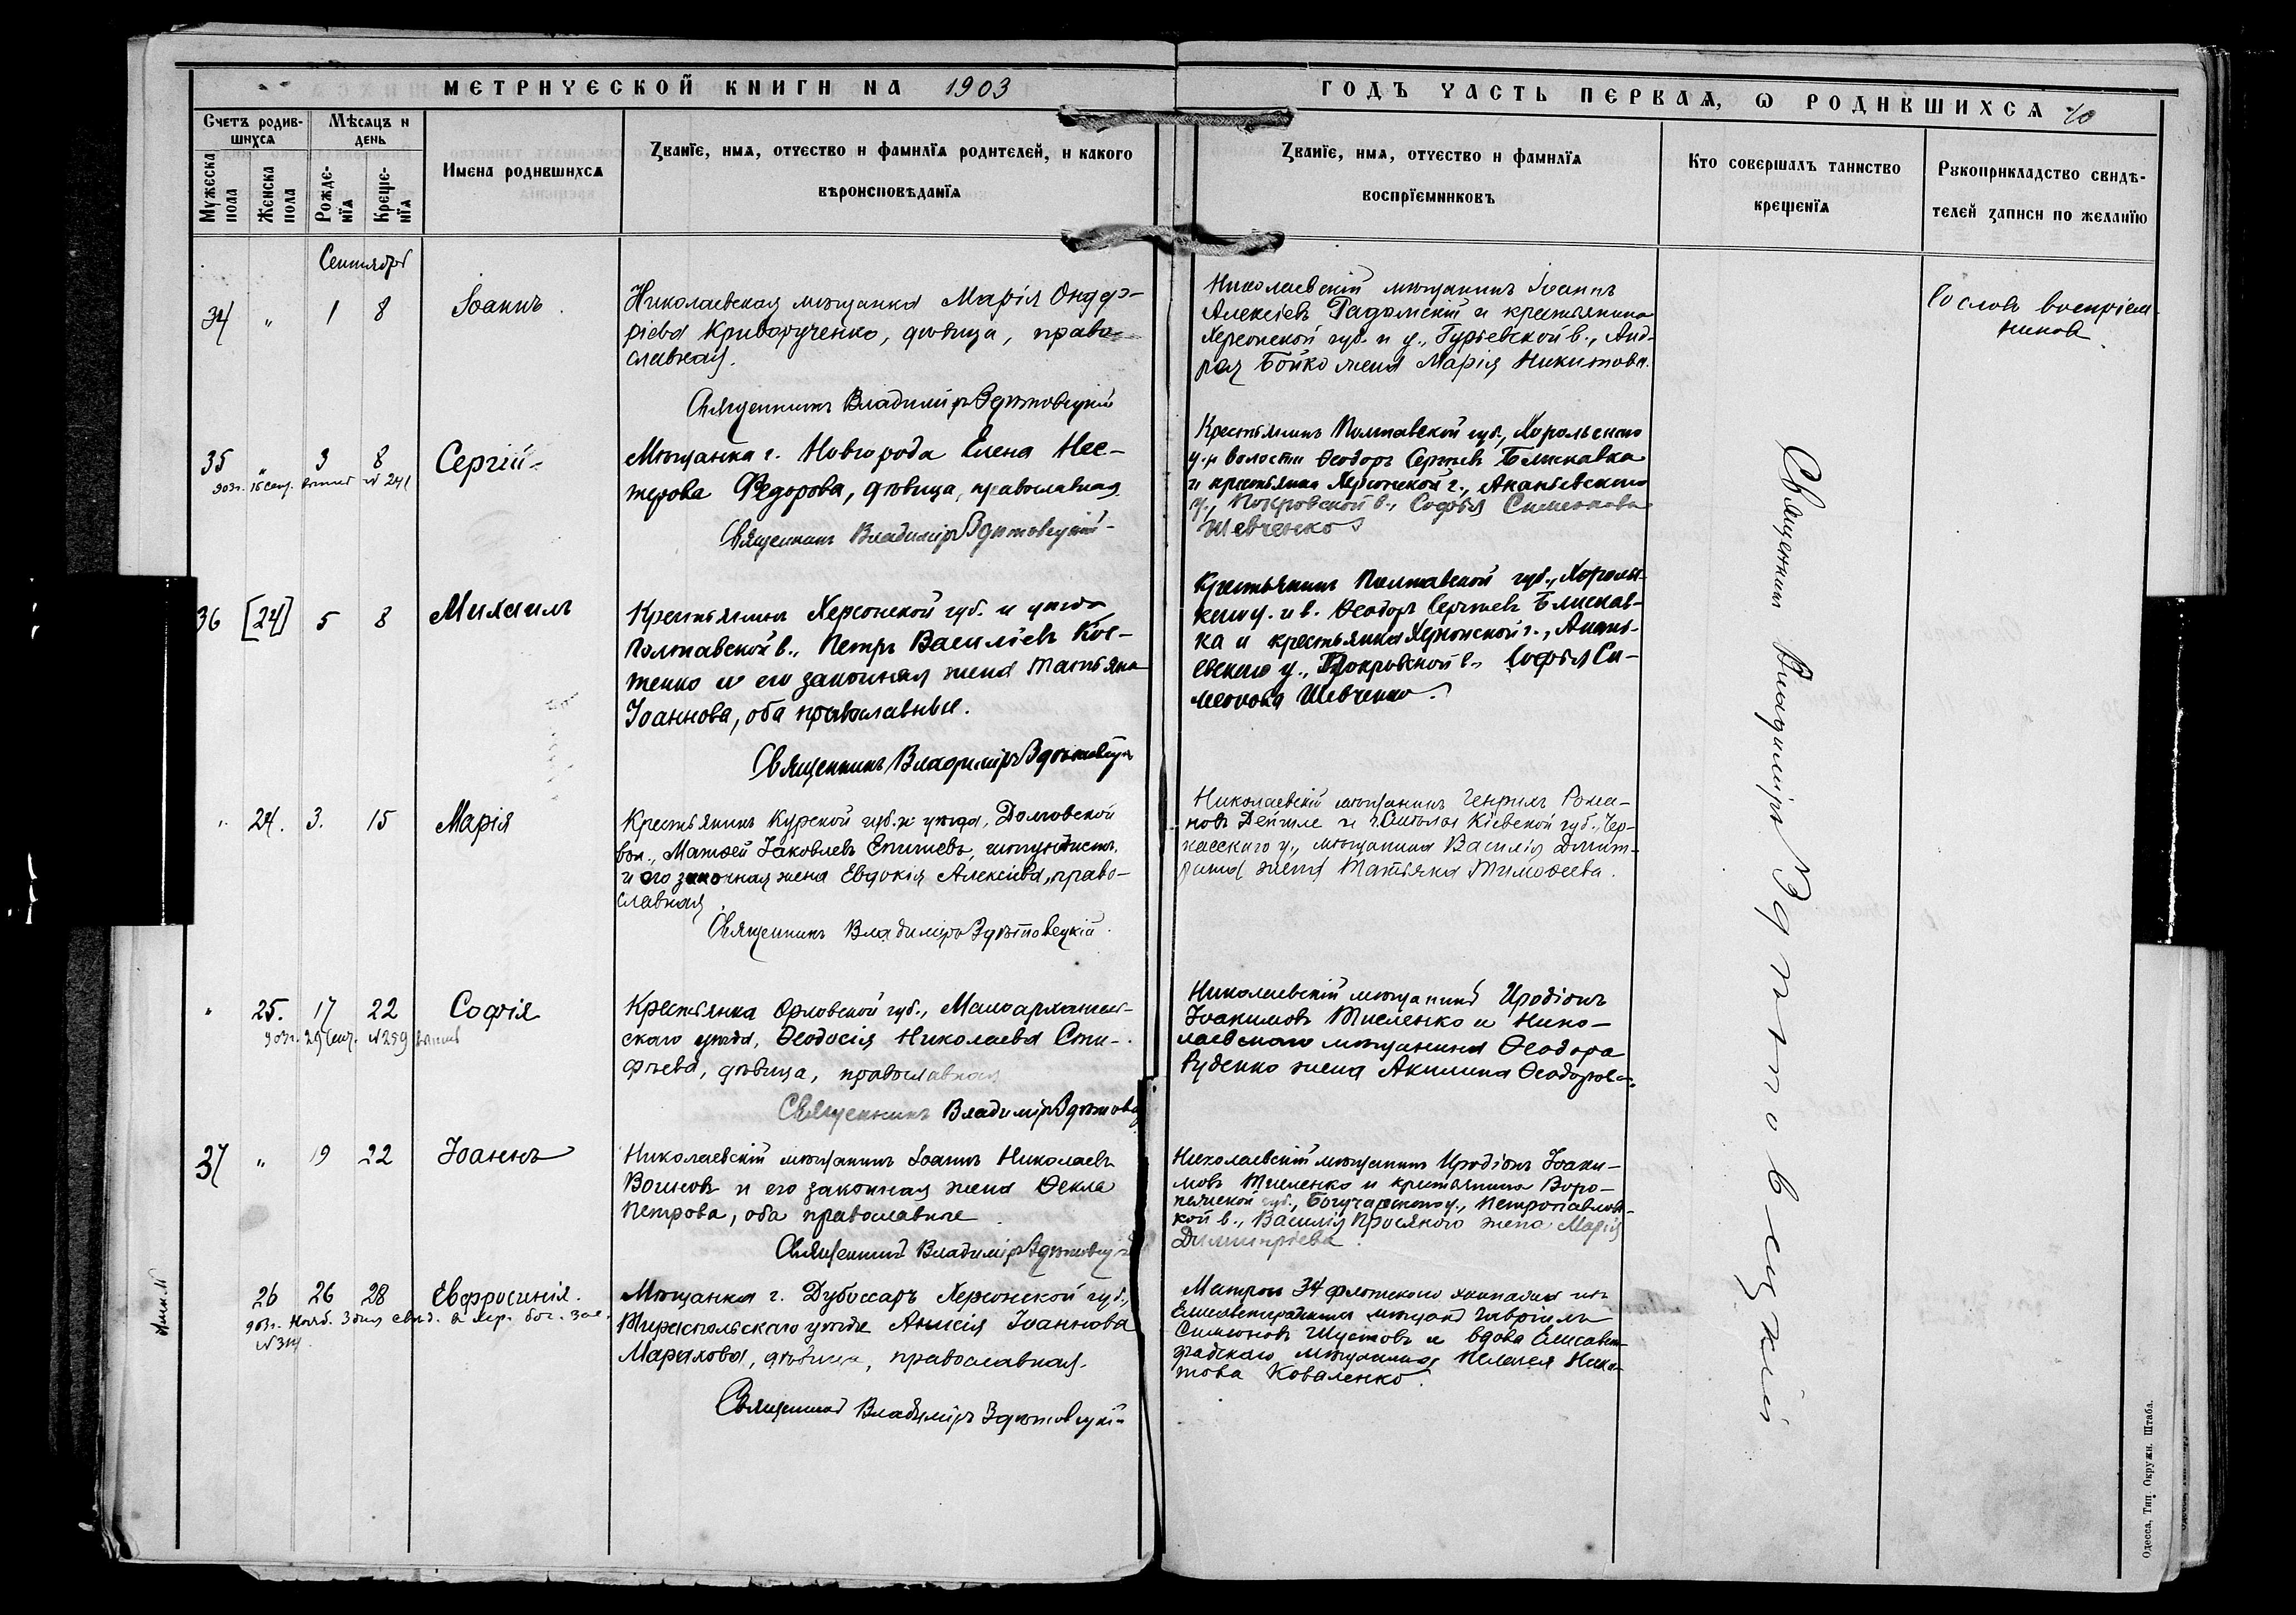 МЕТРИЧЕСКОЙ КНИГИ НА 1903
ГОДЪ ЧАСТЬ ПЕРВАЯ, Ѡ РОДИВШИХСЯ 40
Счетъ родив-
шихся
Мужеска пола
Женска пола
Мѣсяцъ и
день
Рожде-
нїя
Креще-
нїя
Имена родившихся
Званїе, имя, отчество и фамилїя родителей, и какого
вѣроисповѣданїя
Званїе, имя, отчество и фамилїя
воспрїемниковъ
Кто совершалъ таинство
крещенїя
Рукоприкладство свидѣ-
телей записи по желанїю
Сентябрь
34 " 1 8 Іоаннъ
Николаевская мѣщанка Марія
Криворученко, дѣвица, право-
славная.
Священникъ Владиміръ Здѣтовецкій
Николаевскій мѣщанинъ Іоаннъ
Алексіевъ Радомскій и крестьянина
Херсонской губ. и у., Гурьевской в., Анд-
рея Бойко жена Марія Никитова.
Со словъ воспріем-
никовъ.
35 " 3 8 Сергій
903г. 16 сент. № 241
Мѣщанка г. Новгорода Елена Нес-
терова Федорова, дѣвица, православная
Священникъ Владиміръ Здѣтовецкій
Крестьянинъ Полтавской губ., Хорольскаго
у. и волости Ѳеодоръ Сергѣевъ Блискавка
и крестьянка Херсонской г., Ананьевскаго
у., Покровской в., Софья Симеонова
Шевченко
36 [24] 5 8 Михаилъ
Крестьянинъ Херсонской губ. и уѣзда,
Полтавской в., Петръ Василіевъ Кос-
тенко и его законная жена Татьяна
Іоаннова, оба православные.
Священникъ Владиміръ Здѣтовецкій
Крестьянинъ Полтавской губ., Хороль-
скаго у. и в. Ѳеодоръ Сергѣевъ Блискав-
ка и крестьянка Херсонской г., Анань-
евскаго у., Покровской в., Софья Си-
меонова Шевченко.
" 24. 3. 15 Марія
Крестьянинъ Курской губ. и уѣзда, Долговской
вол., Матѳей Іаковлевъ Епишевъ, штундистъ,
и его законная жена Евдокія Алексіева, право-
славная
Священникъ Владиміръ Здѣтовецкій.
Николаевскій мѣщанинъ Генрихъ Рома-
новъ и г. Смѣлы Кіевской губ., Чер-
касскаго у., мѣщанина Василія
жена Татьяна Тимоѳеева.
" 25. 17 22 Софія
903г. 29 Сент. №259
Крестьянка Орловской губ., Малоархангель-
скаго уѣзда, Ѳеодосія Николаева
дѣвица, православная
Священникъ Владиміръ Здѣтовец
Николаевскій мѣщанинъ Иродіонъ
Іоакимовъ Тисленко и Нико-
лаевскаго мѣщанина Ѳеодора
Руденко жена Акилина Ѳеодорова.
37 " 19 22 Іоаннъ
Николаевскій мѣщанинъ Іоаннъ Николаевъ
и его законная жена Ѳекла
Петрова, оба православные
Священникъ Владиміръ Здѣтовецкій
Николаевскій мѣщанинъ Иродіонъ Іоаки-
мовъ Тисленко и крестьянина Воро-
нежской губ., Богучарскаго у., Петропавлов-
кой в., Василія Просяного жена Марія
Димитріева
26 26 28 Евфросинія.
903г. Нояб. 3 дня свид.
№314
Мѣщанка г. Дубоссаръ Херсонской губ.,
Тираспольскаго уѣзда Анисія Іоаннова
дѣвица, православная.
Священникъ Владиміръ Здѣтовецкій
Матросъ 34 флотскаго экипажа изъ
Елисаветградскихъ мѣщанъ Гавріилъ
Симеоновъ Шустовъ и вдова Елисавет-
градскаго мѣщанина, Пелагея Ники-
това Коваленко.
Священникъ Владиміръ Здѣтовецкій
Одесса, Тип. Окружн. Штаба.